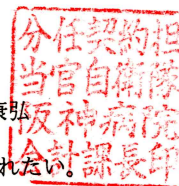 分任契約担
当官自衛隊
阪神病院
会計課長印
弘
れたい。